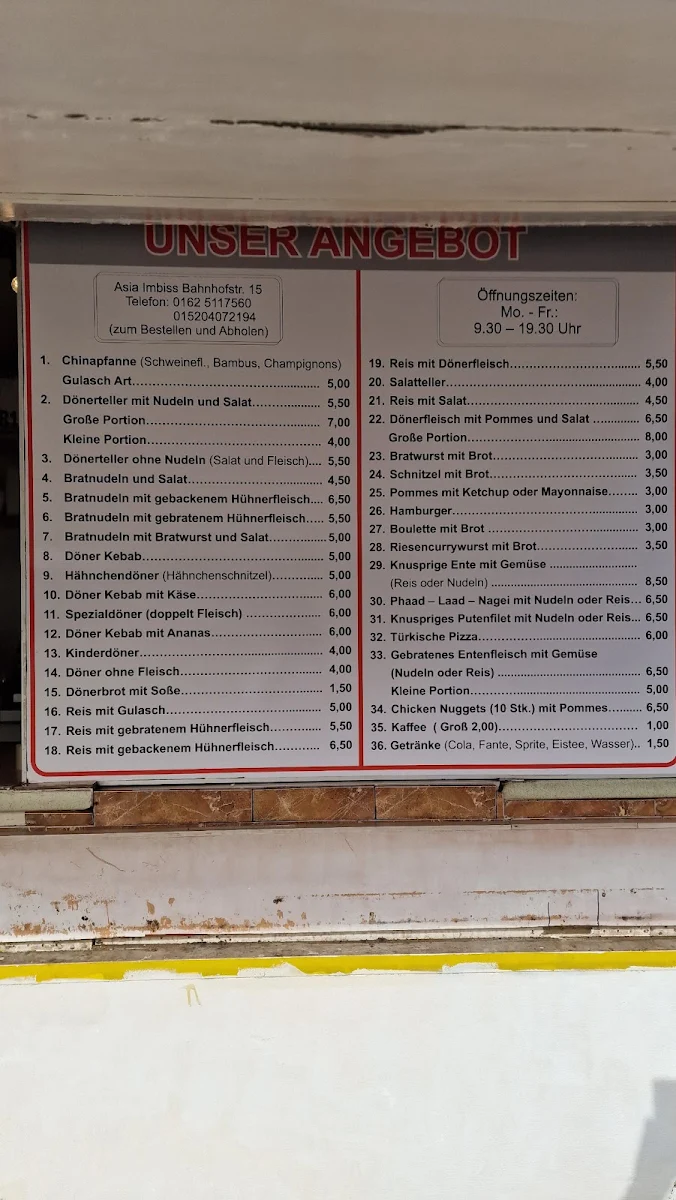 UNSER ANGEBOT
Asia Imbiss Bahnhofstr. 15
Telefon: 0162 5117560
015204072194
(zum Bestellen und Abholen)
1. Chinapfanne (Schweinefl., Bambus, Champignons)
Gulasch Art.................... 5,00
2. Dönerteller mit Nudeln und Salat.................... 5,50
Große Portion.................... 7,00
Kleine Portion.................... 4,00
3. Dönerteller ohne Nudeln (Salat und Fleisch).... 5,50
4. Bratnudeln und Salat.................... 4,50
5. Bratnudeln mit gebackenem Hühnerfleisch.... 6,50
6. Bratnudeln mit gebratenem Hühnerfleisch..... 5,50
7. Bratnudeln mit Bratwurst und Salat.................... 5,00
8. Döner Kebab.................... 5,00
9. Hähnchendöner (Hähnchenschnitzel).............. 5,00
10. Döner Kebab mit Käse.................... 6,00
11. Spezialdöner (doppelt Fleisch) .................... 6,00
12. Döner Kebab mit Ananas.................... 6,00
13. Kinderdöner.................... 4,00
14. Döner ohne Fleisch.................... 4,00
15. Dönerbrot mit Soße.................... 1,50
16. Reis mit Gulasch.................... 5,00
17. Reis mit gebratenem Hühnerfleisch.................... 5,50
18. Reis mit gebackenem Hühnerfleisch............ 6,50
Öffnungszeiten:
Mo. - Fr.:
9.30 – 19.30 Uhr
19. Reis mit Dönerfleisch.................... 5,50
20. Salatteller.................... 4,00
21. Reis mit Salat.................... 4,50
22. Dönerfleisch mit Pommes und Salat ............. 6,50
Große Portion.................... 8,00
23. Bratwurst mit Brot.................... 3,00
24. Schnitzel mit Brot.................... 3,50
25. Pommes mit Ketchup oder Mayonnaise........ 3,00
26. Hamburger.................... 3,00
27. Boulette mit Brot .................... 3,00
28. Riesencurrywurst mit Brot.................... 3,50
29. Knusprige Ente mit Gemüse ....................
(Reis oder Nudeln) .................... 8,50
30. Phaad – Laad – Nagei mit Nudeln oder Reis... 6,50
31. Knuspriges Putenfilet mit Nudeln oder Reis... 6,50
32. Türkische Pizza.................... 6,00
33. Gebratenes Entenfleisch mit Gemüse
(Nudeln oder Reis) .................... 6,50
Kleine Portion.................... 5,00
34. Chicken Nuggets (10 Stk.) mit Pommes......... 6,50
35. Kaffee ( Groß 2,00).................... 1,00
36. Getränke (Cola, Fante, Sprite, Eistee, Wasser).. 1,50